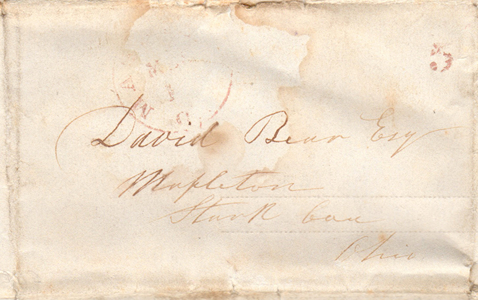 David Bear Esq
Mapleton
Stark Cou
Ohio